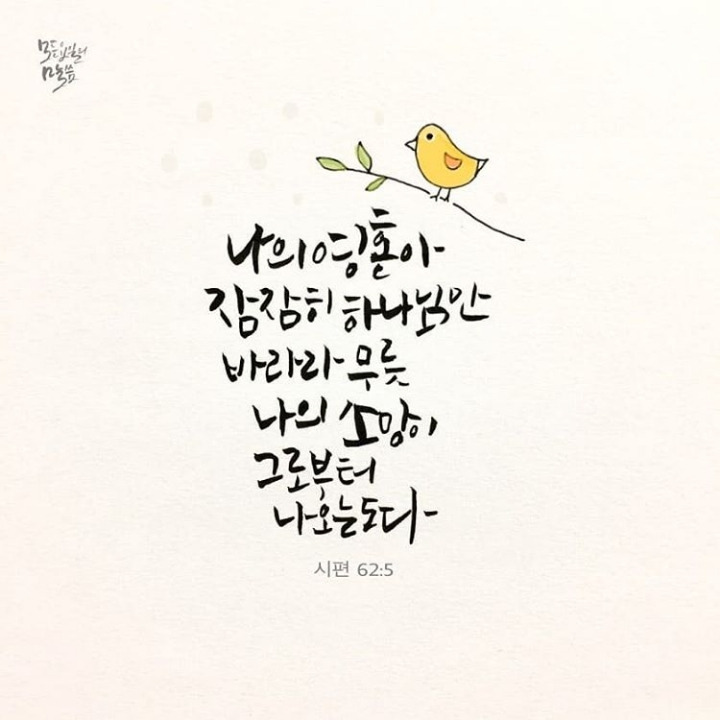 말씀
나의 영혼아
잠잠히 하나님만
바라라 무릇
나의 소망이
그로부터
나오는도다
시편 62:5